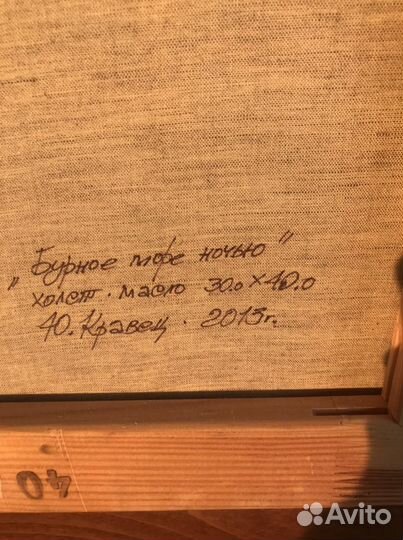 „Бурное море ночью"
холст. масло 30.0 × 40.0
Ю. Кравец. 2013г.
40
Avito